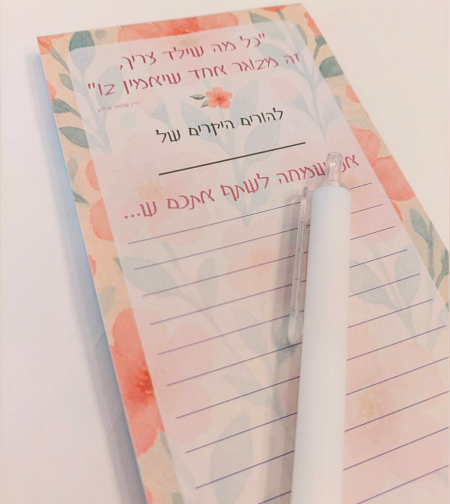 "כל מה שילד צריך,
זה מבוגר אחד שיאמין בו"
להורים היקרים של
שמחה לשתף אתכם ש...